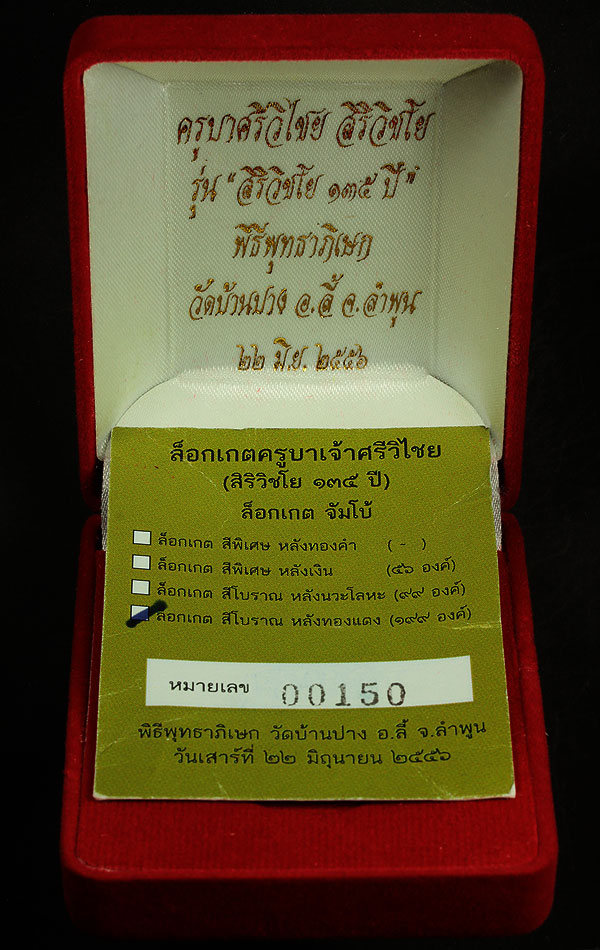 ครูบาศรีวิไชย สิริวิชโย
รุ่น “สิริวิชโย ๑๓๕ ปี”
พิธีพุทธาภิเษก
วัดบ้านปาง อ.ลี้ จ.ลำพูน
๒๒ มิ.ย. ๒๕๕๖
ล็อกเกตครูบาเจ้าศรีวิไชย
(สิริวิชโย ๑๓๕ ปี)
ล็อกเกต จัมโบ้
ล็อกเกต สีพิเศษ หลังทองคำ ( - )
ล็อกเกต สีพิเศษ หลังเงิน (๕๖ องค์)
ล็อกเกต สีโบราณ หลังนวะโลหะ (๙๙ องค์)
ล็อกเกต สีโบราณ หลังทองแดง (๑๙๙ องค์)
หมายเลข 00150
พิธีพุทธาภิเษก วัดบ้านปาง อ.ลี้ จ.ลำพูน
วันเสาร์ที่ ๒๒ มิถุนายน ๒๕๕๖